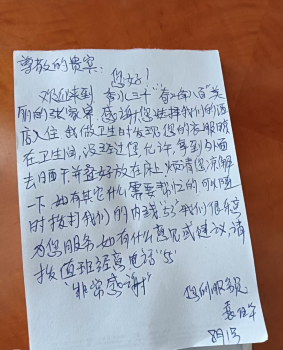 尊敬的贵宾:
您好!
欢迎来到 有小三千 奇 美
丽的张家界 感谢您选择我们的酒
店入住 我做卫生时发现您的衣服晾
在卫生间,没经过您允许,拿到外面
去晒干并叠好放在床上,烦请您谅解
一下,如有其它什么需要帮忙的可以随
时拨打我们的内线"55"我们很乐意
为您服务,如有什么意见或建议,请
拨值班经理电话"55"
"非常感谢"
您的服务员
8月1号